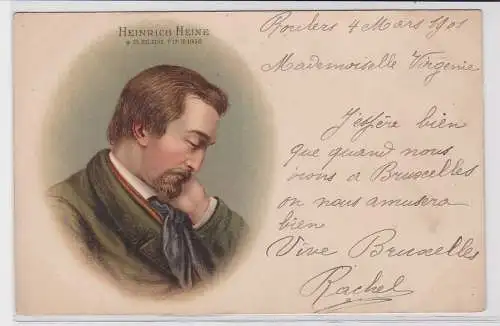 HEINRICH HEINE
Roulers 4 Mars 1901
Mademoiselle Virginie
J'espère bien
que quand nous
irons à Bruxelles
on nous amusera
bien
Vive Bruxelles
Rachel